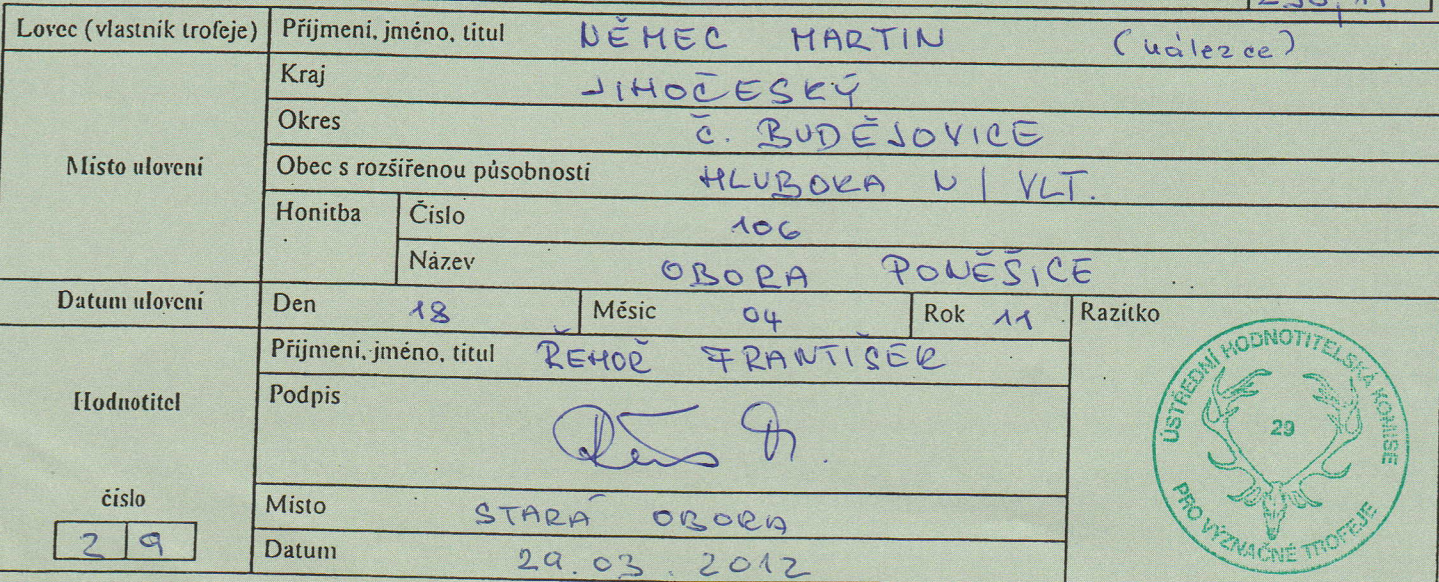 Lovec (vlastník trofeje) Příjmení, jméno, titul NĚMEC MARTIN (nálezce)
Místo ulovení
Kraj JIHOČESKÝ
Okres Č. BUDĚJOVICE
Obec s rozšířenou působností HLUBOKA N/VLT.
Honitba Číslo 106
Název OBORA PONĚŠICE
Datum ulovení Den 18 Měsíc 04 Rok 11 Razítko
Hodnotitel
Příjmení, jméno, titul ŘEHOŘ FRANTIŠEK
Podpis
číslo 29
Místo STARÁ OBORA
Datum 29.03.2012
ÚSTŘEDNÍ HODNOTITELSKÁ KOMISE
29
PRO VÝZNAČNÉ TROFEJE